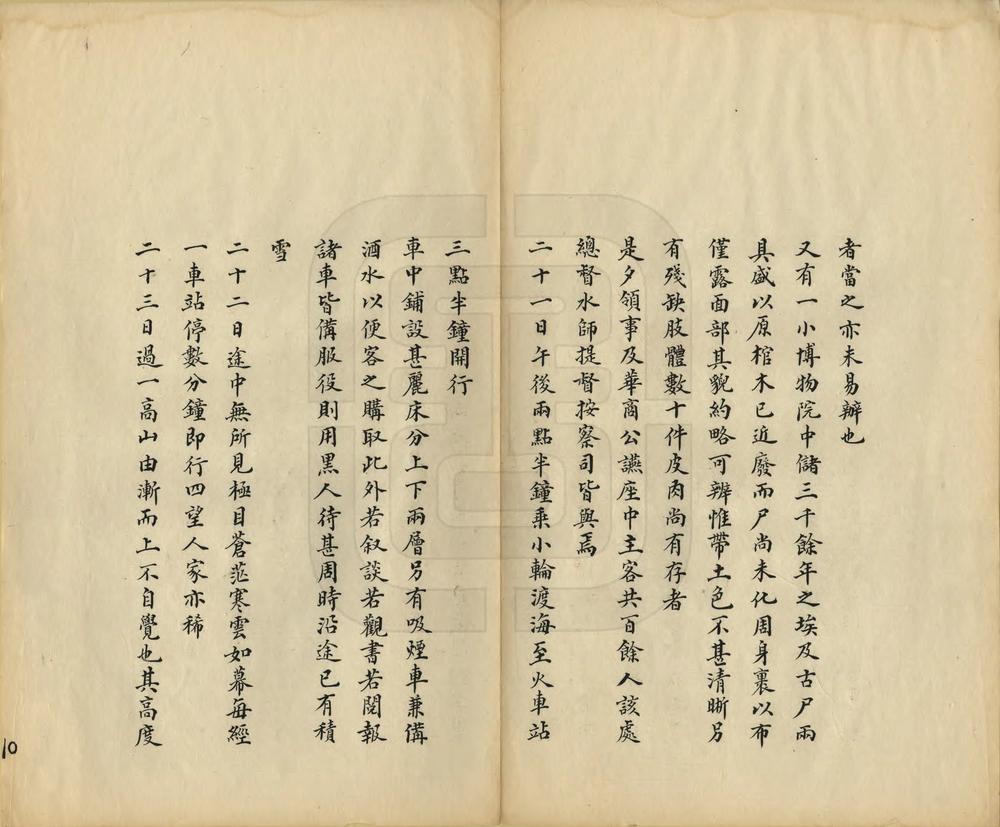 者當之亦未易辦也
又有一小博物院中儲三千餘年之埃及古尸兩
具盛以原棺木已近廢而尸尚未化周身裹以布
僅露面部其貌約略可辨惟帶土色不甚清晰另
有殘缺肢體數十件皮肉尚有存者
是夕領事及華商公讌座中主客共百餘人該處
總督水師提督按察司皆與焉
二十一日午後兩點半鐘乗小輪渡海至火車站
三點半鐘開行
車中鋪設甚麗床分上下兩層另有吸煙車兼備
酒水以便客之購取此外若叙談若觀書若閱報
諸車皆備服役則用黑人待甚周時沿途已有積
雪
二十二日途中無所見極目蒼茫寒雲如幕每經
一車站停數分鐘即行四望人家亦稀
二十三日過一高山由漸而上不自覺也其高度
10